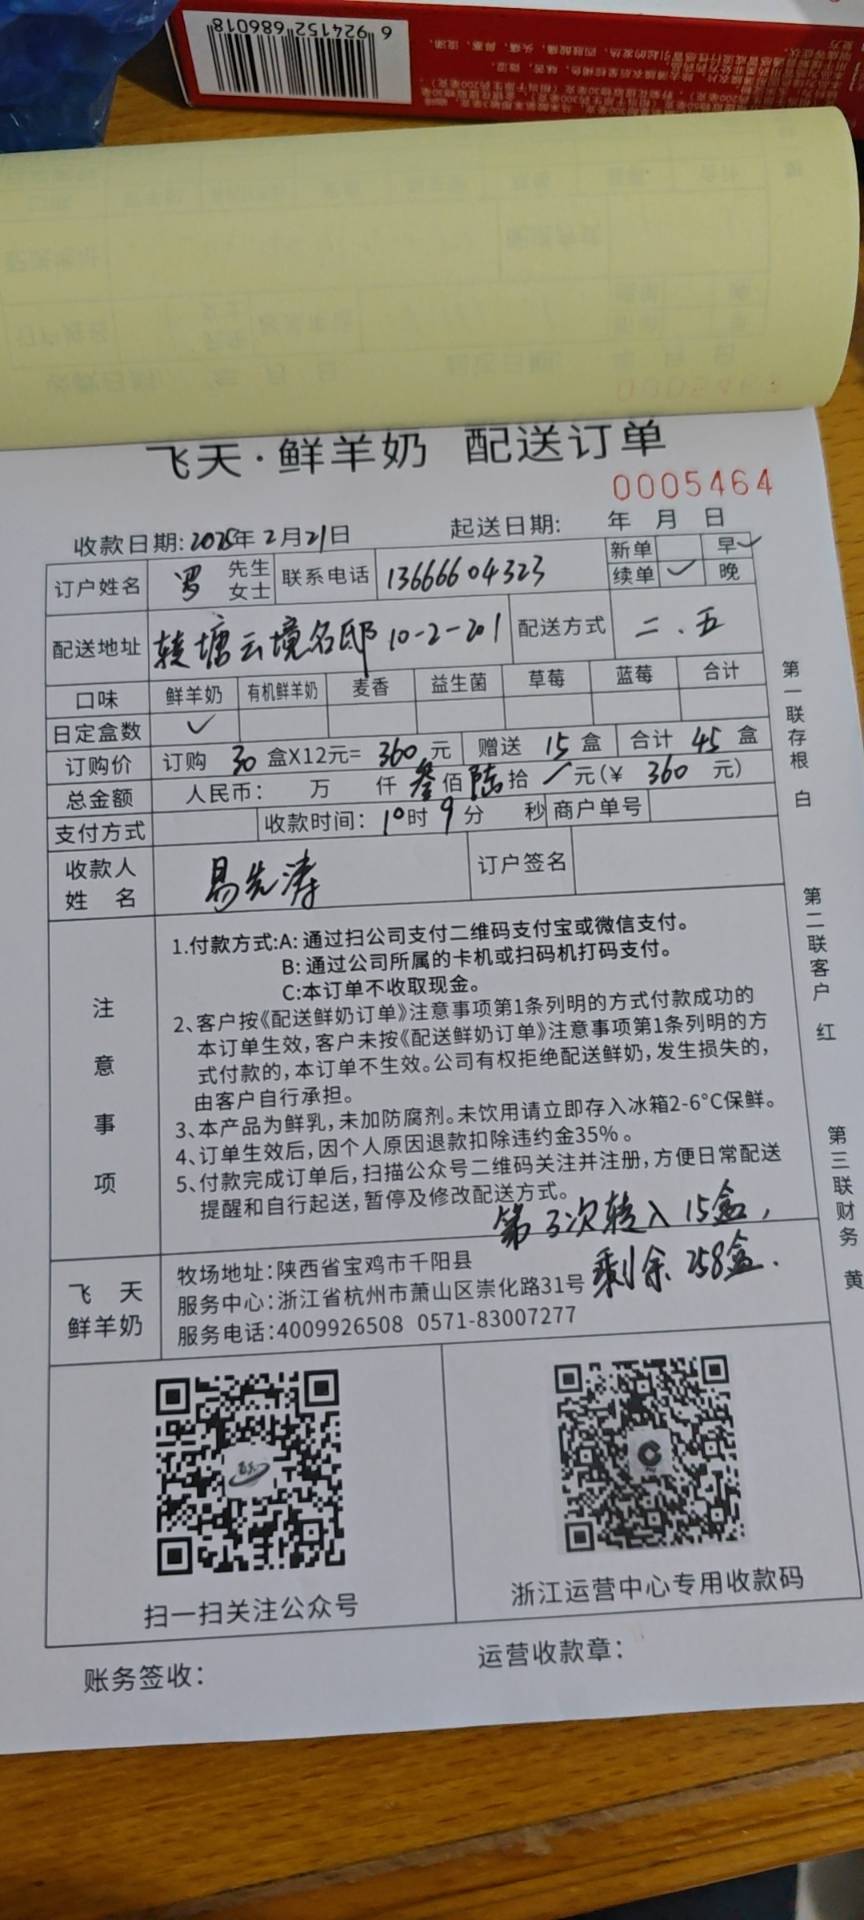 6 924152 686018
飞天·鲜羊奶 配送订单
0005464
收款日期:2025年2月21日 起送日期: 年 月 日
订户姓名 罗 先生 女士 联系电话 13666604323 新单 早✓
续单 ✓ 晚
配送地址 转塘云境名邸10-2-201 配送方式 二、五
口味 鲜羊奶 有机鲜羊奶 麦香 益生菌 草莓 蓝莓 合计
日定盒数 ✓
订购价 订购 30 盒X12元= 360 元 赠送 15 盒 合计 45 盒
总金额 人民币: 万 仟 叁佰陆拾/元(¥ 360 元)
支付方式 收款时间: 10时9分 秒 商户单号
收款人姓名 易先涛 订户签名
注意事项
1.付款方式:A:通过扫公司支付二维码支付宝或微信支付。
B:通过公司所属的卡机或扫码机打码支付。
C:本订单不收取现金。
2、客户按《配送鲜奶订单》注意事项第1条列明的方式付款成功的
本订单生效,客户未按《配送鲜奶订单》注意事项第1条列明的方
式付款的,本订单不生效。公司有权拒绝配送鲜奶,发生损失的,
由客户自行承担。
3、本产品为鲜乳,未加防腐剂。未饮用请立即存入冰箱2-6°C保鲜。
4、订单生效后,因个人原因退款扣除违约金35%。
5、付款完成订单后,扫描公众号二维码关注并注册,方便日常配送
提醒和自行起送,暂停及修改配送方式。
第3次转入15盒,
剩余258盒.
飞天
鲜羊奶
牧场地址:陕西省宝鸡市千阳县
服务中心:浙江省杭州市萧山区崇化路31号
服务电话:4009926508 0571-83007277
扫一扫关注公众号
浙江运营中心专用收款码
账务签收:
运营收款章:
第一联存根 白
第二联客户 红
第三联财务 黄